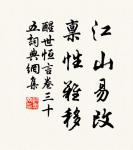 江山易改
稟性難移
醒世恒言卷三十
五詞典網集